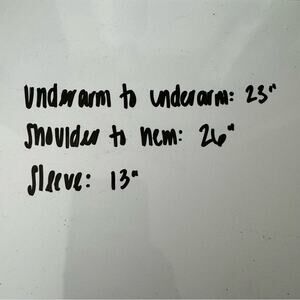 underarm to underarm: 23"
shoulder to hem: 26"
sleeve: 13"